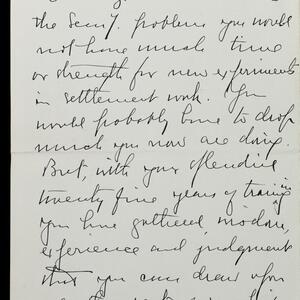 the Sem'y. problem you would
not have much time
or strength for new experiments
in settlement work. You
would probably have to drop
much you now are doing.
But, with your splendid
twenty five years of training in
you have gathered, wisdom,
experience and judgment
that you can draw upon